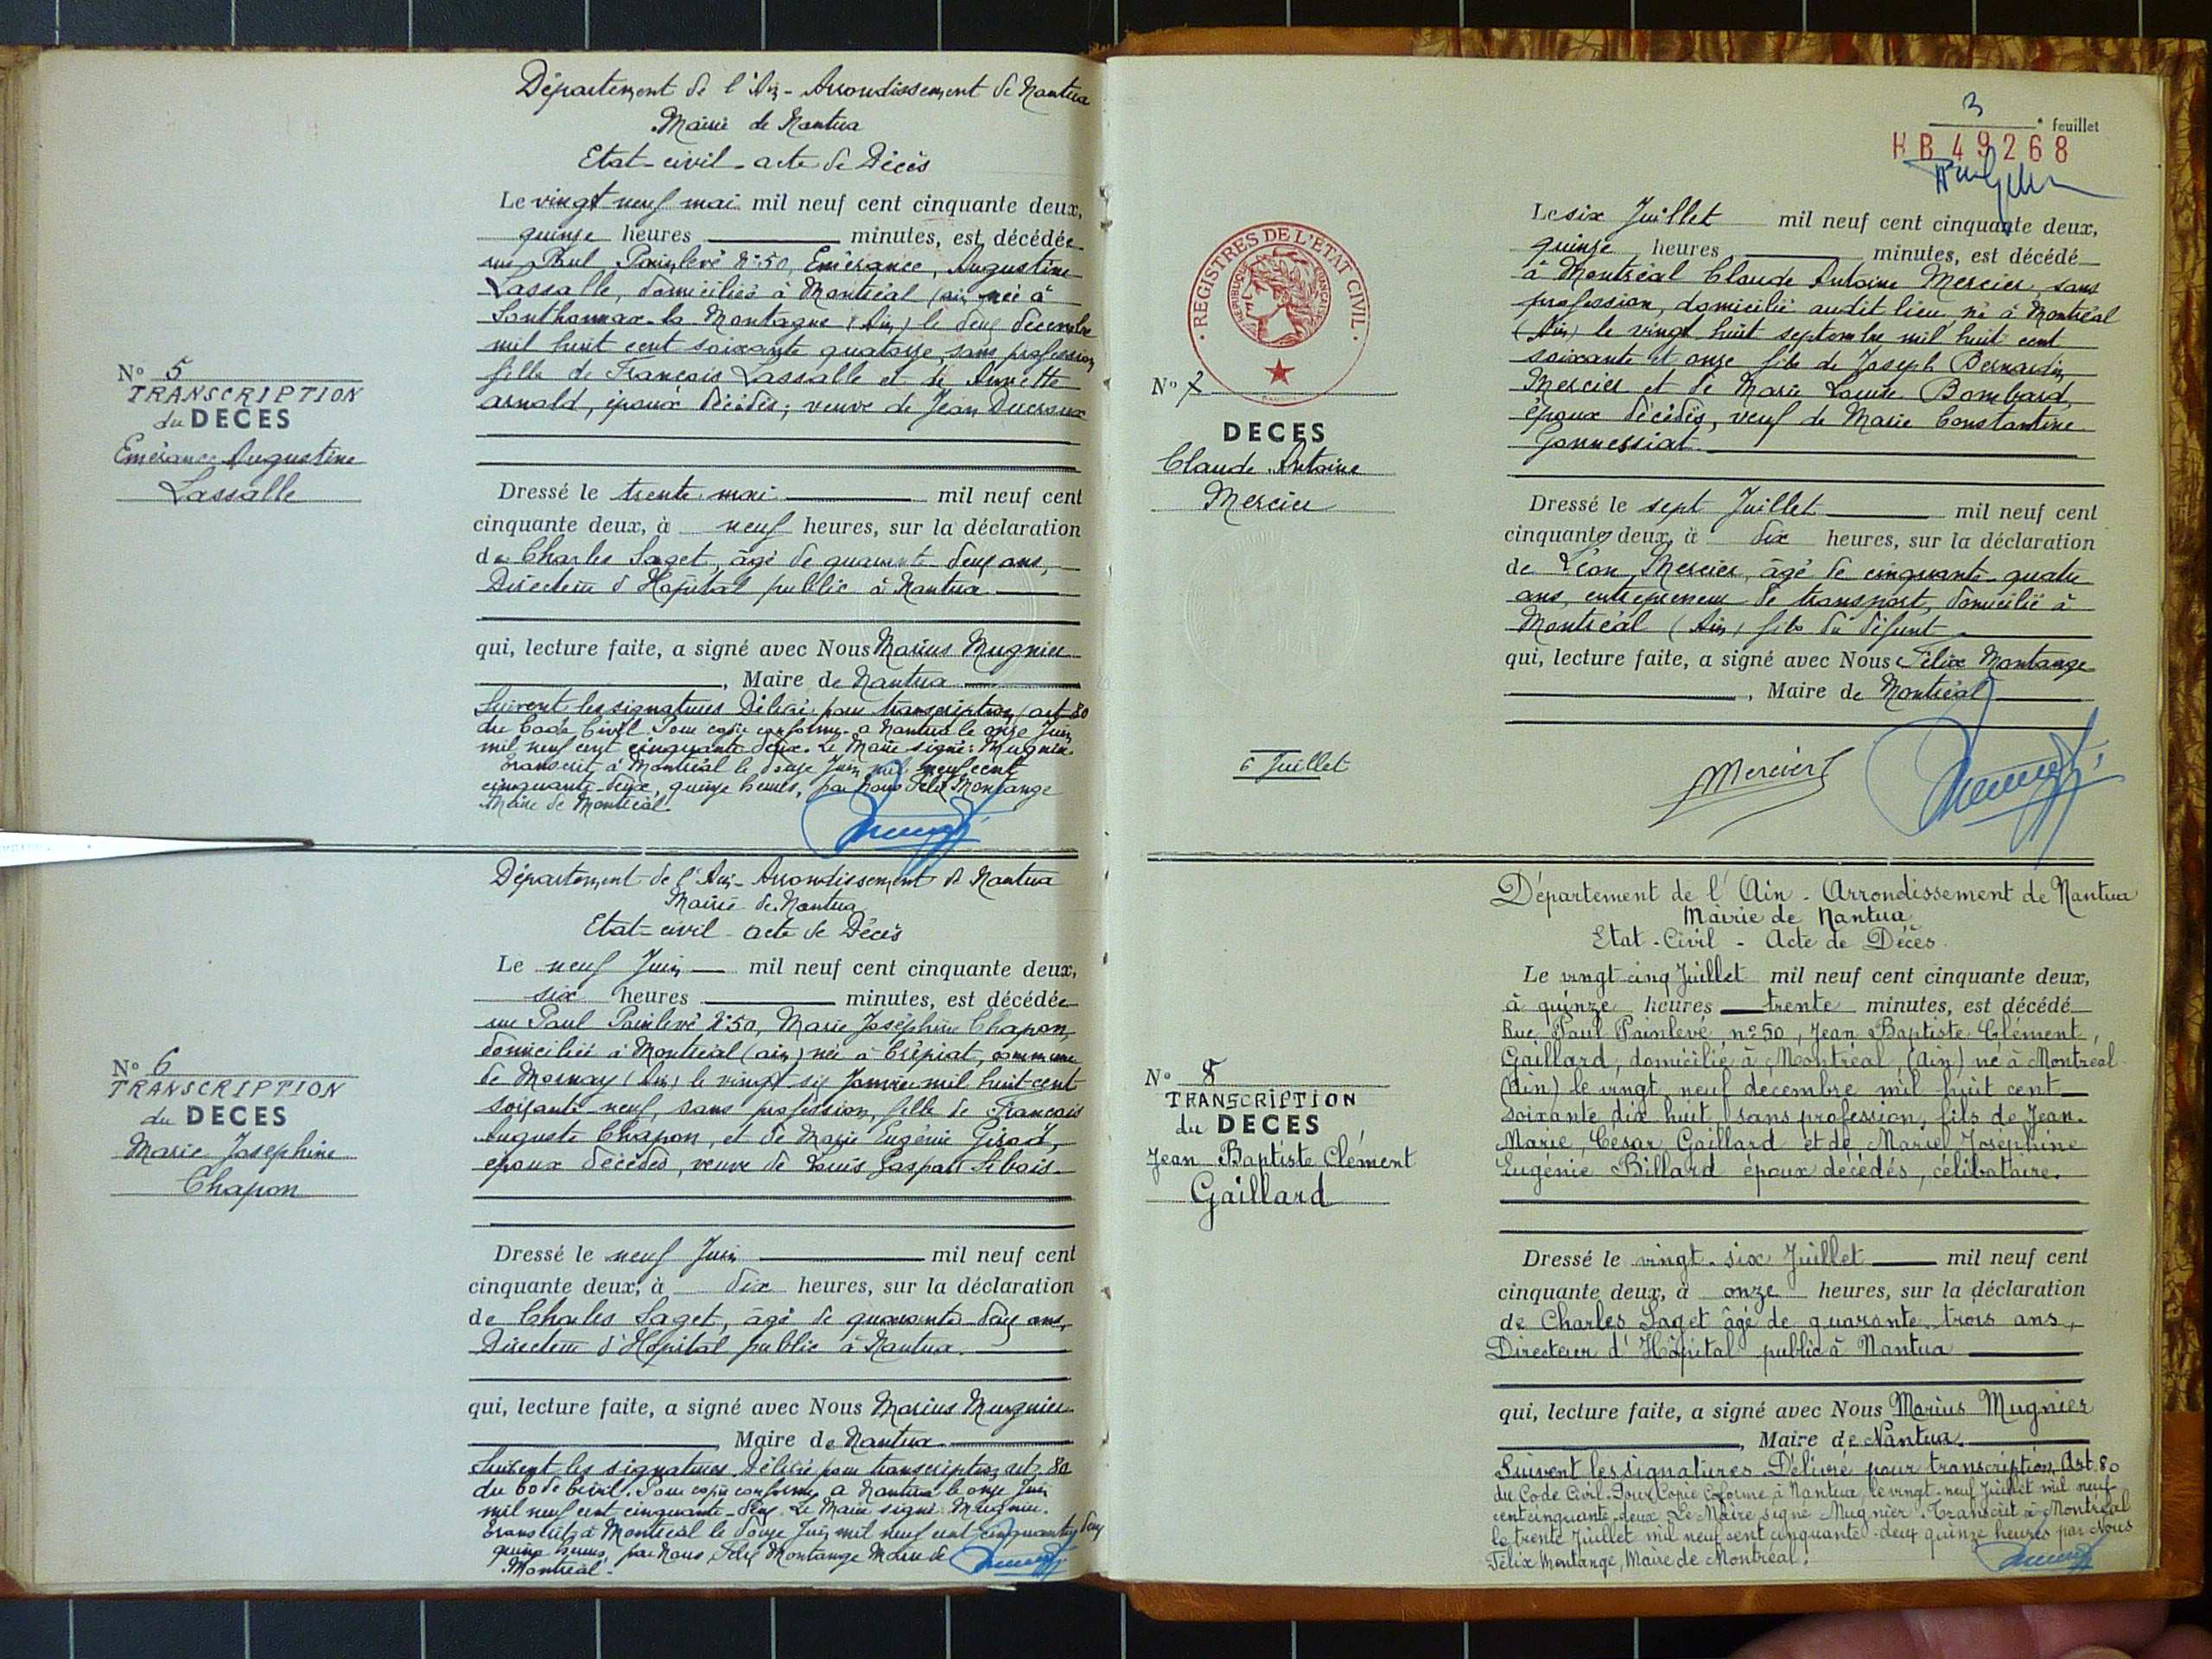 Département de l'Ain - Arrondissement de Nantua
Mairie de Nantua
Etat-civil - acte de Décès
Le vingt neuf mai mil neuf cent cinquante deux,
quinze heures minutes, est décédée
rue Paul Painlevé N° 50, Emérance, Augustine
Lassalle, domiciliée à Montréal (Ain) née à
Sonthonnax-la-Montagne (Ain) le deux décembre
mil huit cent soixante quatorze, sans profession
fille de François Lassalle et de Annette
arnold, époux décédés; veuve de Jean Ducroux
N° 5
TRANSCRIPTION
du DECES
Emérance Augustine
Lassalle
Dressé le trente mai mil neuf cent
cinquante deux, à neuf heures, sur la déclaration
de Charles Saget, âgé de quarante deux ans,
Directeur d'Hôpital public à Nantua
qui, lecture faite, a signé avec Nous Marius Mugnier
, Maire de Nantua
Suivent les signatures Délivré pour transcription (art 80
du Code Civil. Pour copie conforme à Nantua le onze Juin
mil neuf cent cinquante deux. Le Maire signé: Mugnier.
Transcrit à Montréal le douze Juin mil neuf cent
cinquante-deux, quinze heures, par Nous Félix Montange
Maire de Montréal
Département de l'Ain - Arrondissement de Nantua
Mairie de Nantua
Etat-civil - acte de Décès
Le neuf Juin mil neuf cent cinquante deux,
six heures minutes, est décédée
rue Paul Painlevé N° 50, Marie Joséphine Chapon,
domiciliée à Montréal (ain) née à Crépiat, commune
de Mornay (Ain) le vingt six Janvier mil huit cent
soixante neuf, sans profession, fille de François
Auguste Chapon, et de Marie Eugénie Girod,
époux décédés, veuve de Louis Gaspard Sibois
N° 6
TRANSCRIPTION
du DECES
Marie Josephine
Chapon
Dressé le neuf Juin mil neuf cent
cinquante deux, à dix heures, sur la déclaration
de Charles Saget, âgé de quarante deux ans,
Directeur d'Hôpital public à Nantua.
qui, lecture faite, a signé avec Nous Marius Mugnier
, Maire de Nantua
Suivent les signatures Délivré pour transcription art. 80
du Code Civil. Pour copie conforme, à Nantua le onze Juin
mil neuf cent cinquante-deux Le Maire signé Mugnier.
Transcrit à Montréal le douze Juin mil neuf cent cinquante deux
quinze heures, par Nous Félix Montange Maire de
Montréal.
3 e feuillet
HB 49268
REGISTRES DE L'ETAT CIVIL
REPUBLIQUE FRANÇAISE
Le six Juillet mil neuf cent cinquante deux,
quinze heures minutes, est décédé
à Montréal Claude Antoine Mercier, sans
profession, domicilié audit lieu, né à Montréal
(Ain) le vingt huit septembre mil huit cent
soixante et onze fils de Joseph Bernardin
Mercier et de Marie Louise Bombard,
époux décédés, veuf de Marie Constantine
Gonnessiat
N° 7
DECES
Claude Antoine
Mercier
Dressé le sept Juillet mil neuf cent
cinquante deux, à dix heures, sur la déclaration
de Léon Mercier, âgé de cinquante quatre
ans, entrepreneur de transport, domicilié à
Montréal (Ain) fils du défunt
qui, lecture faite, a signé avec Nous Félix Montange
, Maire de Montréal
6 Juillet
Mercier
Département de l'Ain - Arrondissement de Nantua
Mairie de Nantua
Etat-Civil - Acte de Décès
Le vingt cinq Juillet mil neuf cent cinquante deux,
à quinze heures trente minutes, est décédé
Rue Paul Painlevé n° 50, Jean Baptiste Clément,
Gaillard, domicilié à Montréal, (Ain) né à Montréal
(Ain) le vingt neuf decembre mil huit cent
soixante dix huit, sans profession, fils de Jean-
Marie, César Gaillard et de Marie Joséphine
Eugénie Billard époux décédés, célibataire.
N° 8
TRANSCRIPTION
du DECES
Jean Baptiste Clément
Gaillard
Dressé le vingt-six Juillet mil neuf cent
cinquante deux, à onze heures, sur la déclaration
de Charles Saget âgé de quarante trois ans,
Directeur d'Hôpital public à Nantua
qui, lecture faite, a signé avec Nous Marius Mugnier
, Maire de Nantua.
Suivent les signatures. Délivré pour transcription, Art. 80
du Code Civil. Pour Copie Conforme, à Nantua, le vingt-neuf Juillet mil neuf
cent cinquante-deux. Le Maire signé Mugnier. Transcrit à Montréal
le trente Juillet mil neuf cent cinquante-deux quinze heures par Nous
Félix Montange, Maire de Montréal.